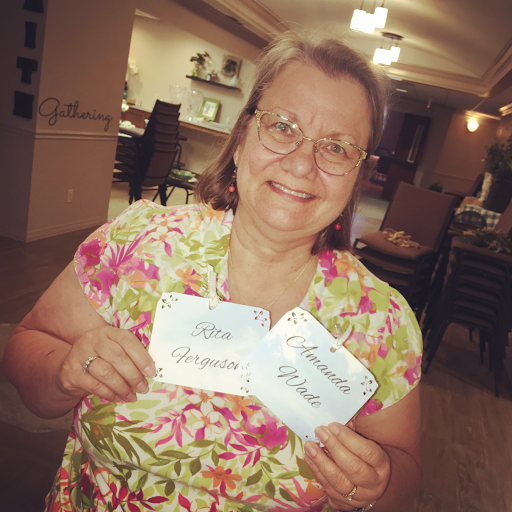 AITH
Gathering
Rita
Ferguson
Amanda
Wade